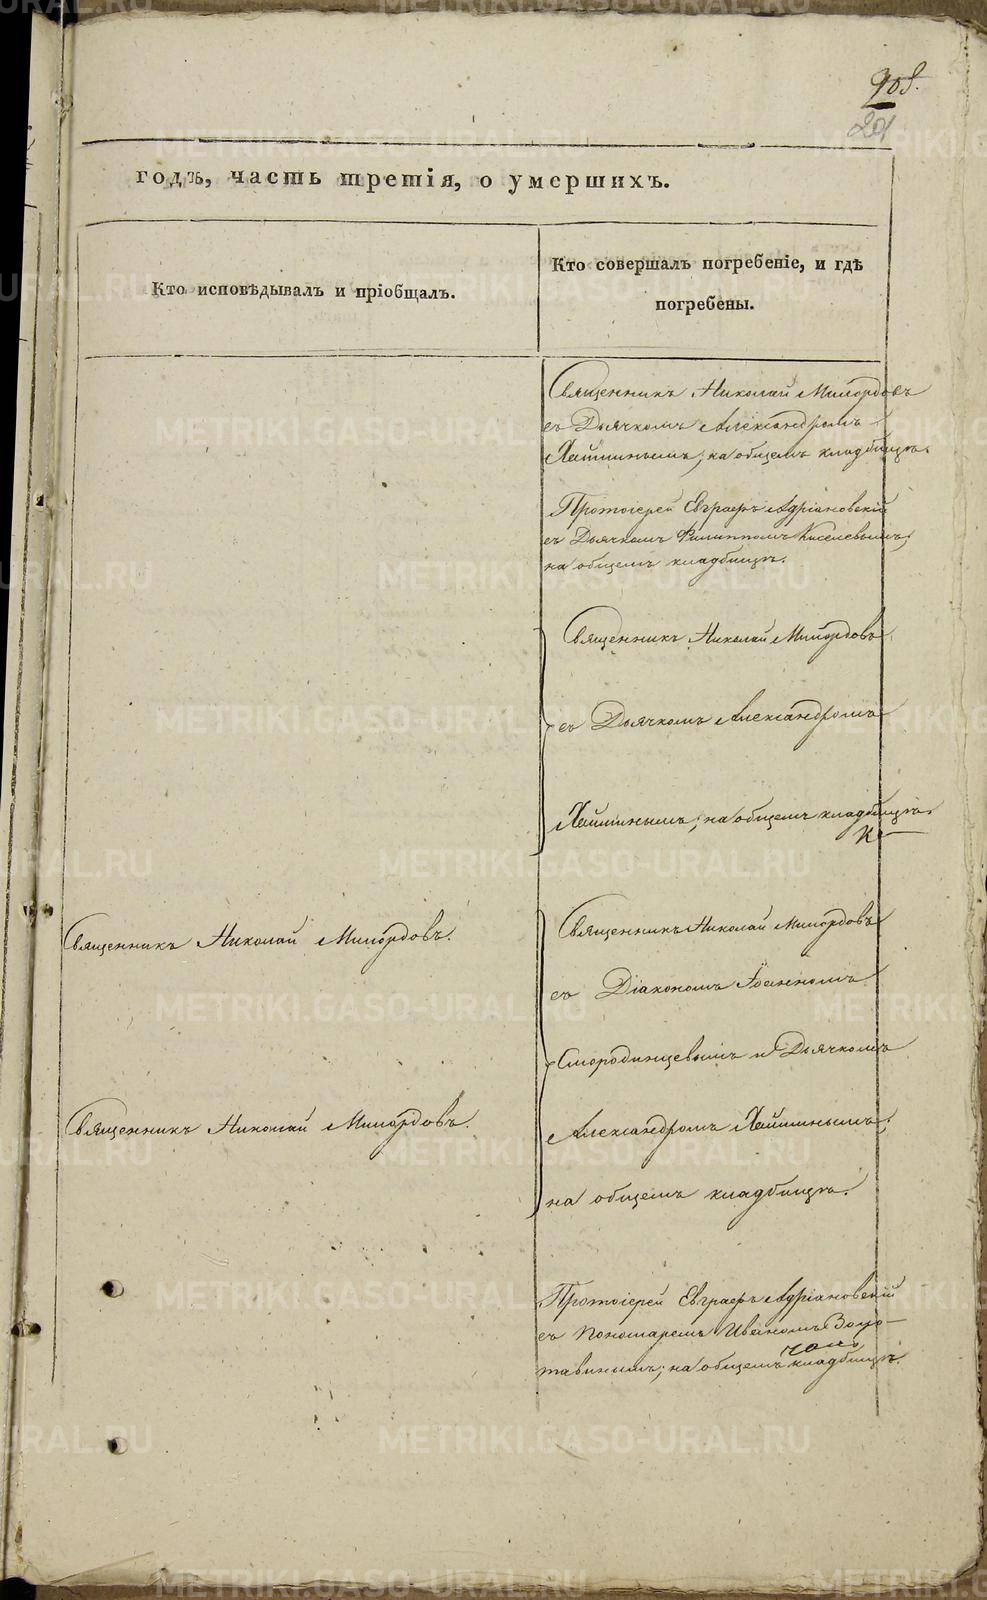 годъ, часть третія, о умершихъ.
Кто исповѣдывалъ и пріобщалъ.
Кто совершалъ погребеніе, и гдѣ
погребены.
Священникъ Николай Милордовъ
съ Дьячкомъ Александромъ
на общемъ кладбищѣ.
Протоіерей Евграфъ Адріановскій
съ Дьячкомъ Филиппомъ Киселевымъ;
на общемъ кладбищѣ.
Священникъ Николай Милордовъ
съ Дьячкомъ Александромъ
на общемъ кладбищѣ.
Священникъ Николай Милордовъ.
Священникъ Николай Милордовъ
съ Діакономъ Іоанномъ
Смородинцевымъ и Дьячкомъ
Священникъ Николай Милордовъ.
Александромъ
на общемъ кладбищѣ.
Протоіерей Евграфъ Адріановскій
съ Пономаремъ Иваномъ
на общемъ кладбищѣ.
METRIKI.GASO-URAL.RU